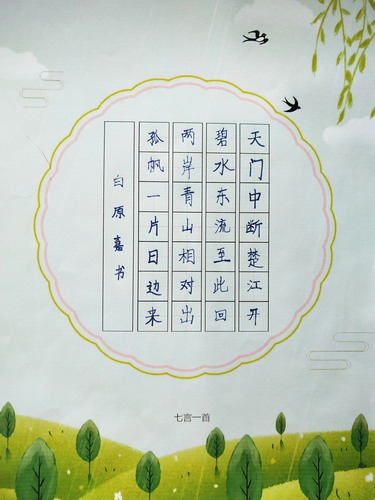 天门中断楚江开
碧水东流至此回
两岸青山相对出
孤帆一片日边来
白原嘉书
七言一首